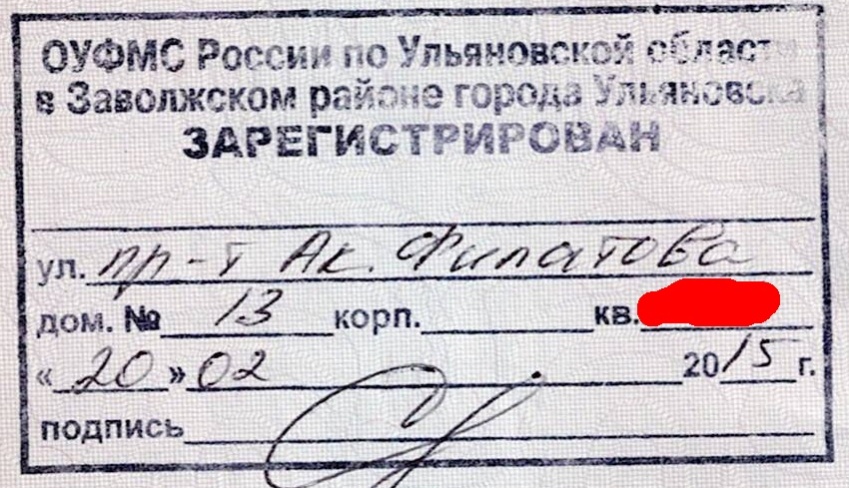 ОУФМС России по Ульяновской области
в Заволжском районе города Ульяновска
ЗАРЕГИСТРИРОВАН
ул. пр-т Ак. Филатова
дом. № 13 корп. кв.
«20» 02 2015 г.
подпись